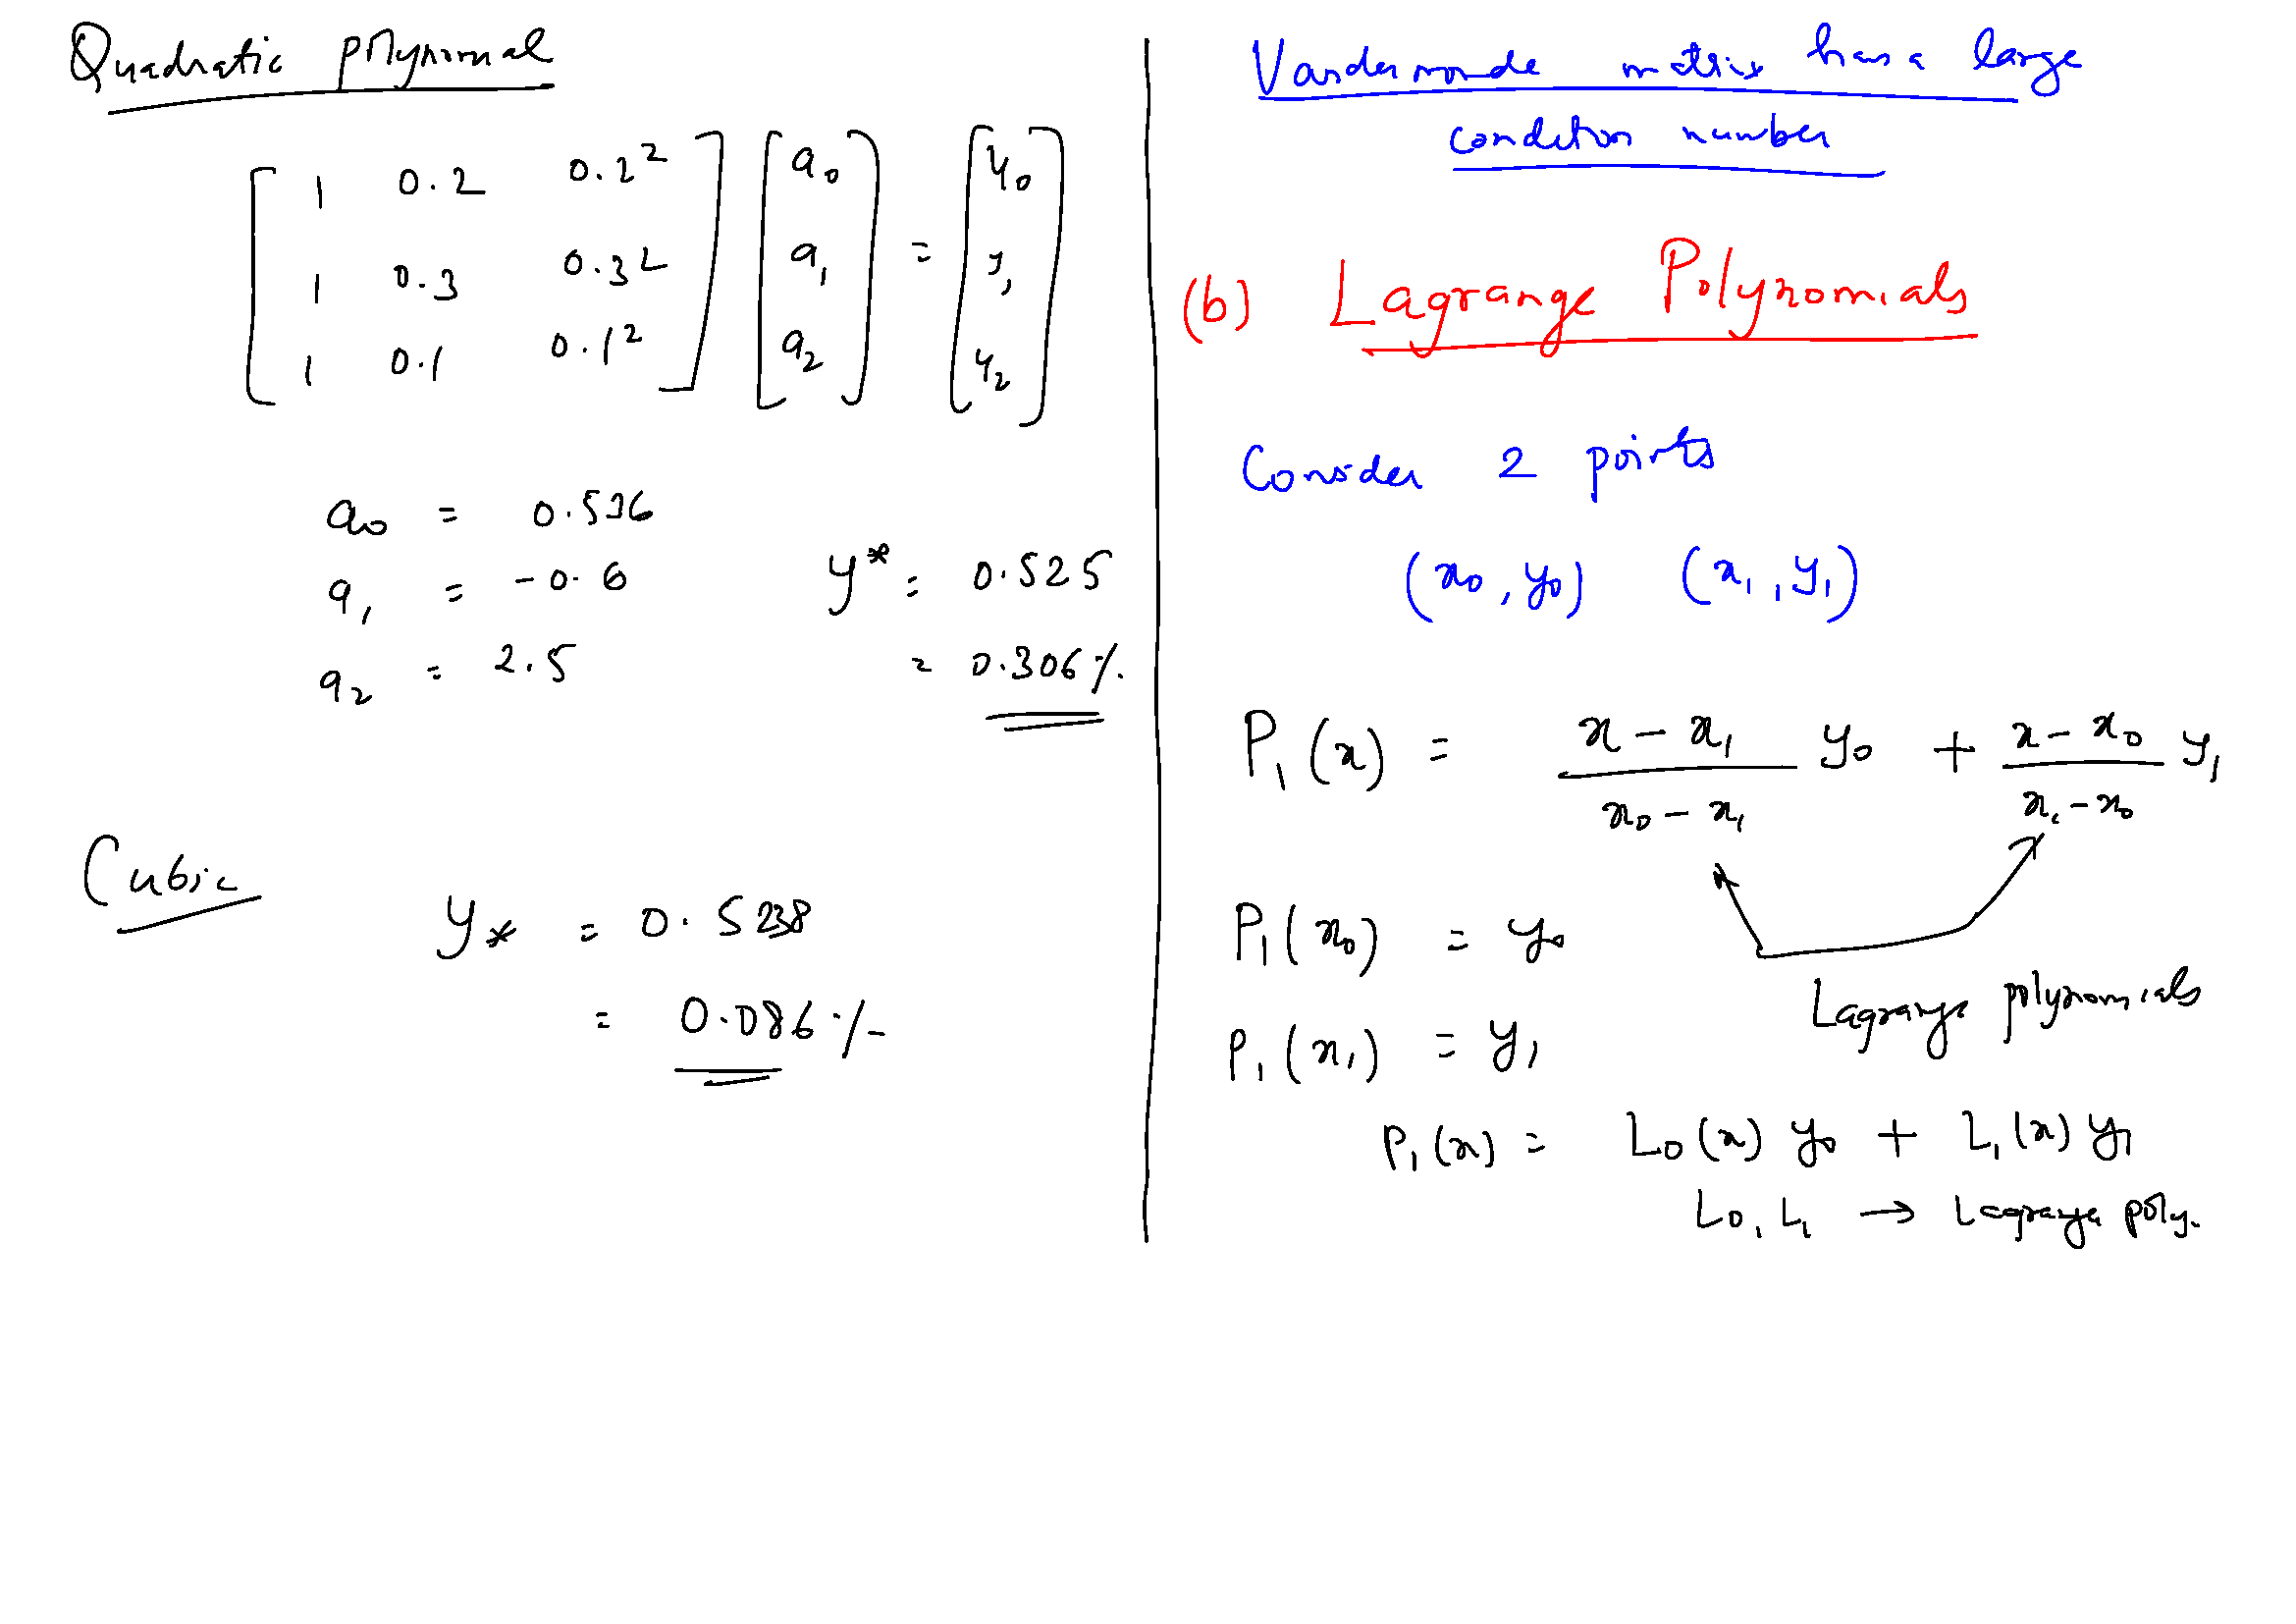 Quadratic polynomial
[ 1 0.2 0.2² ] [ a₀ ] = [ y₀ ]
[ 1 0.3 0.3² ] [ a₁ ] = [ y₁ ]
[ 1 0.1 0.1² ] [ a₂ ] = [ y₂ ]
a₀ =
a₁ = -0.6
a₂ = 2.5
y* = 0.525
= 0.306 %
Cubic
y* = 0.5238
= 0.086 %
Vandermonde matrix has a large
condition number
(b) Lagrange Polynomials
Consider 2 points
(x₀, y₀) (x₁, y₁)
P₁(x) = (x - x₁)/(x₀ - x₁) y₀ + (x - x₀)/(x₁ - x₀) y₁
P₁(x₀) = y₀
Lagrange polynomials
P₁(x₁) = y₁
P₁(x) = L₀(x) y₀ + L₁(x) y₁
L₀, L₁ → Lagrange poly.